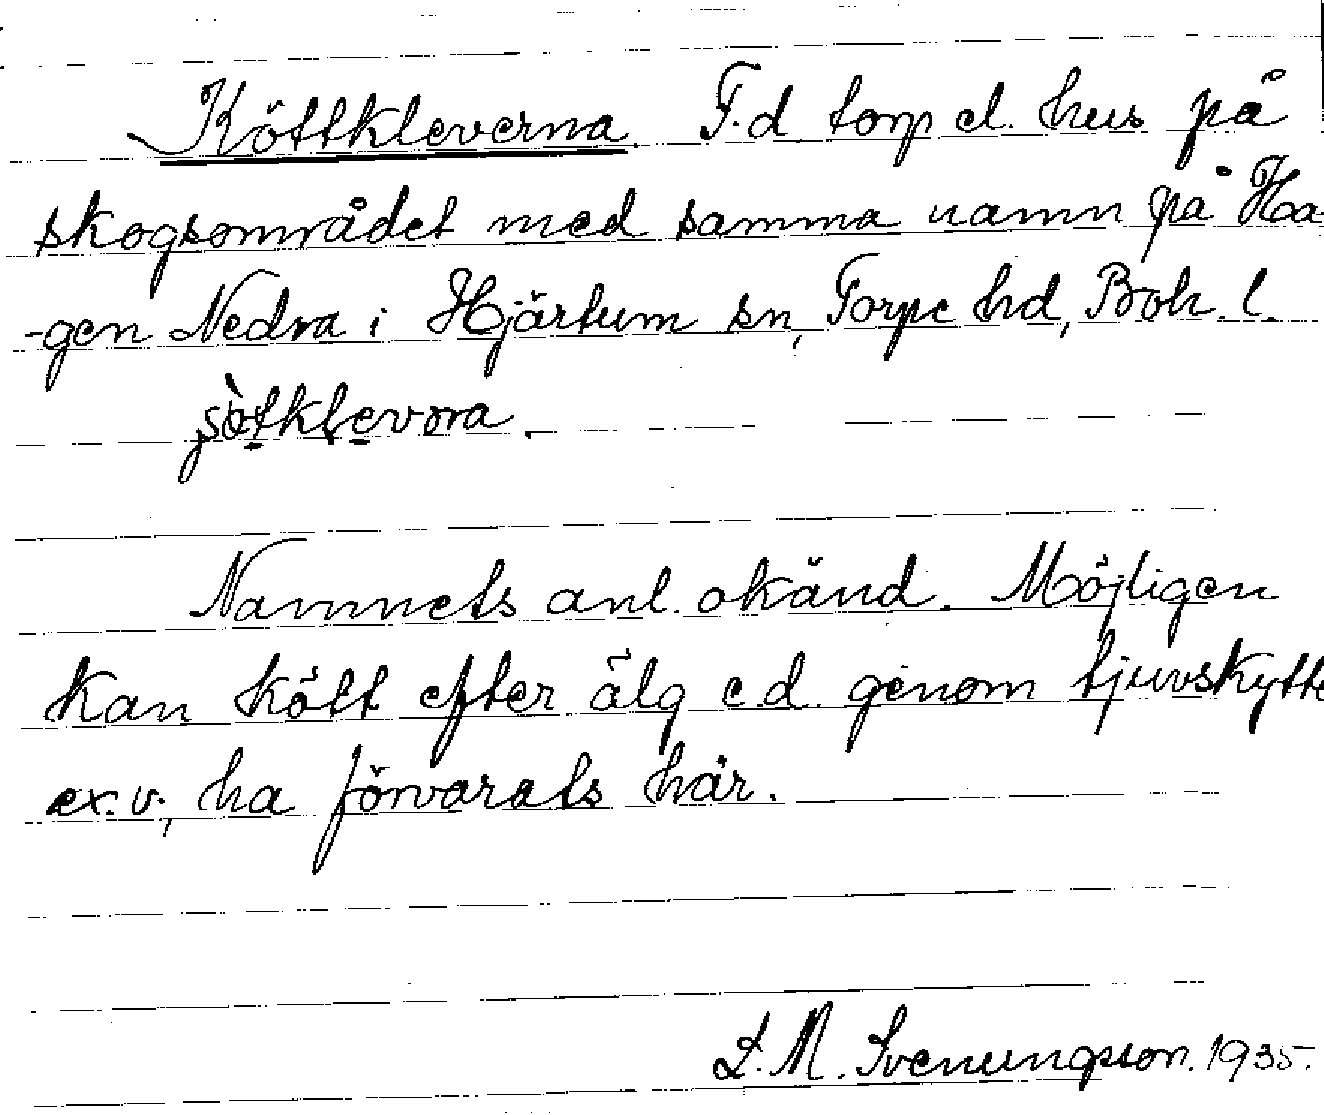 Köttkleverna. F.d torp el. hus på
skogsområdet med samma namn på Ha-
-gen Nedra i Hjärtum sn, Torpe hd, Boh. l.
Namnets anl. okänd. Möjligen
kan kött efter älg e.d. genom tjuvskytte
ex.v, ha förvarats här.
L. M. Svenungsson. 1935.